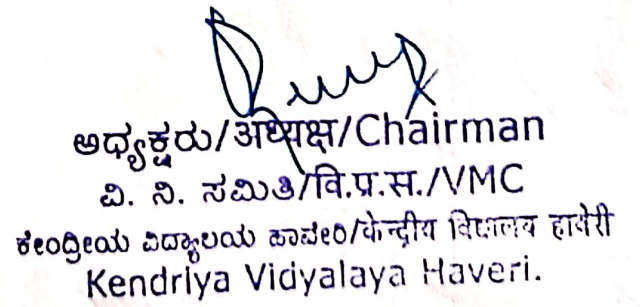 ಅಧ್ಯಕ್ಷರು/अध्यक्ष/Chairman
ವಿ. ನಿ. ಸಮಿತಿ/वि.प्र.स./VMC
ಕೇಂದ್ರೀಯ ವಿದ್ಯಾಲಯ ಹಾವೇರಿ/केन्द्रीय विद्यालय हावेरी
Kendriya Vidyalaya Haveri.